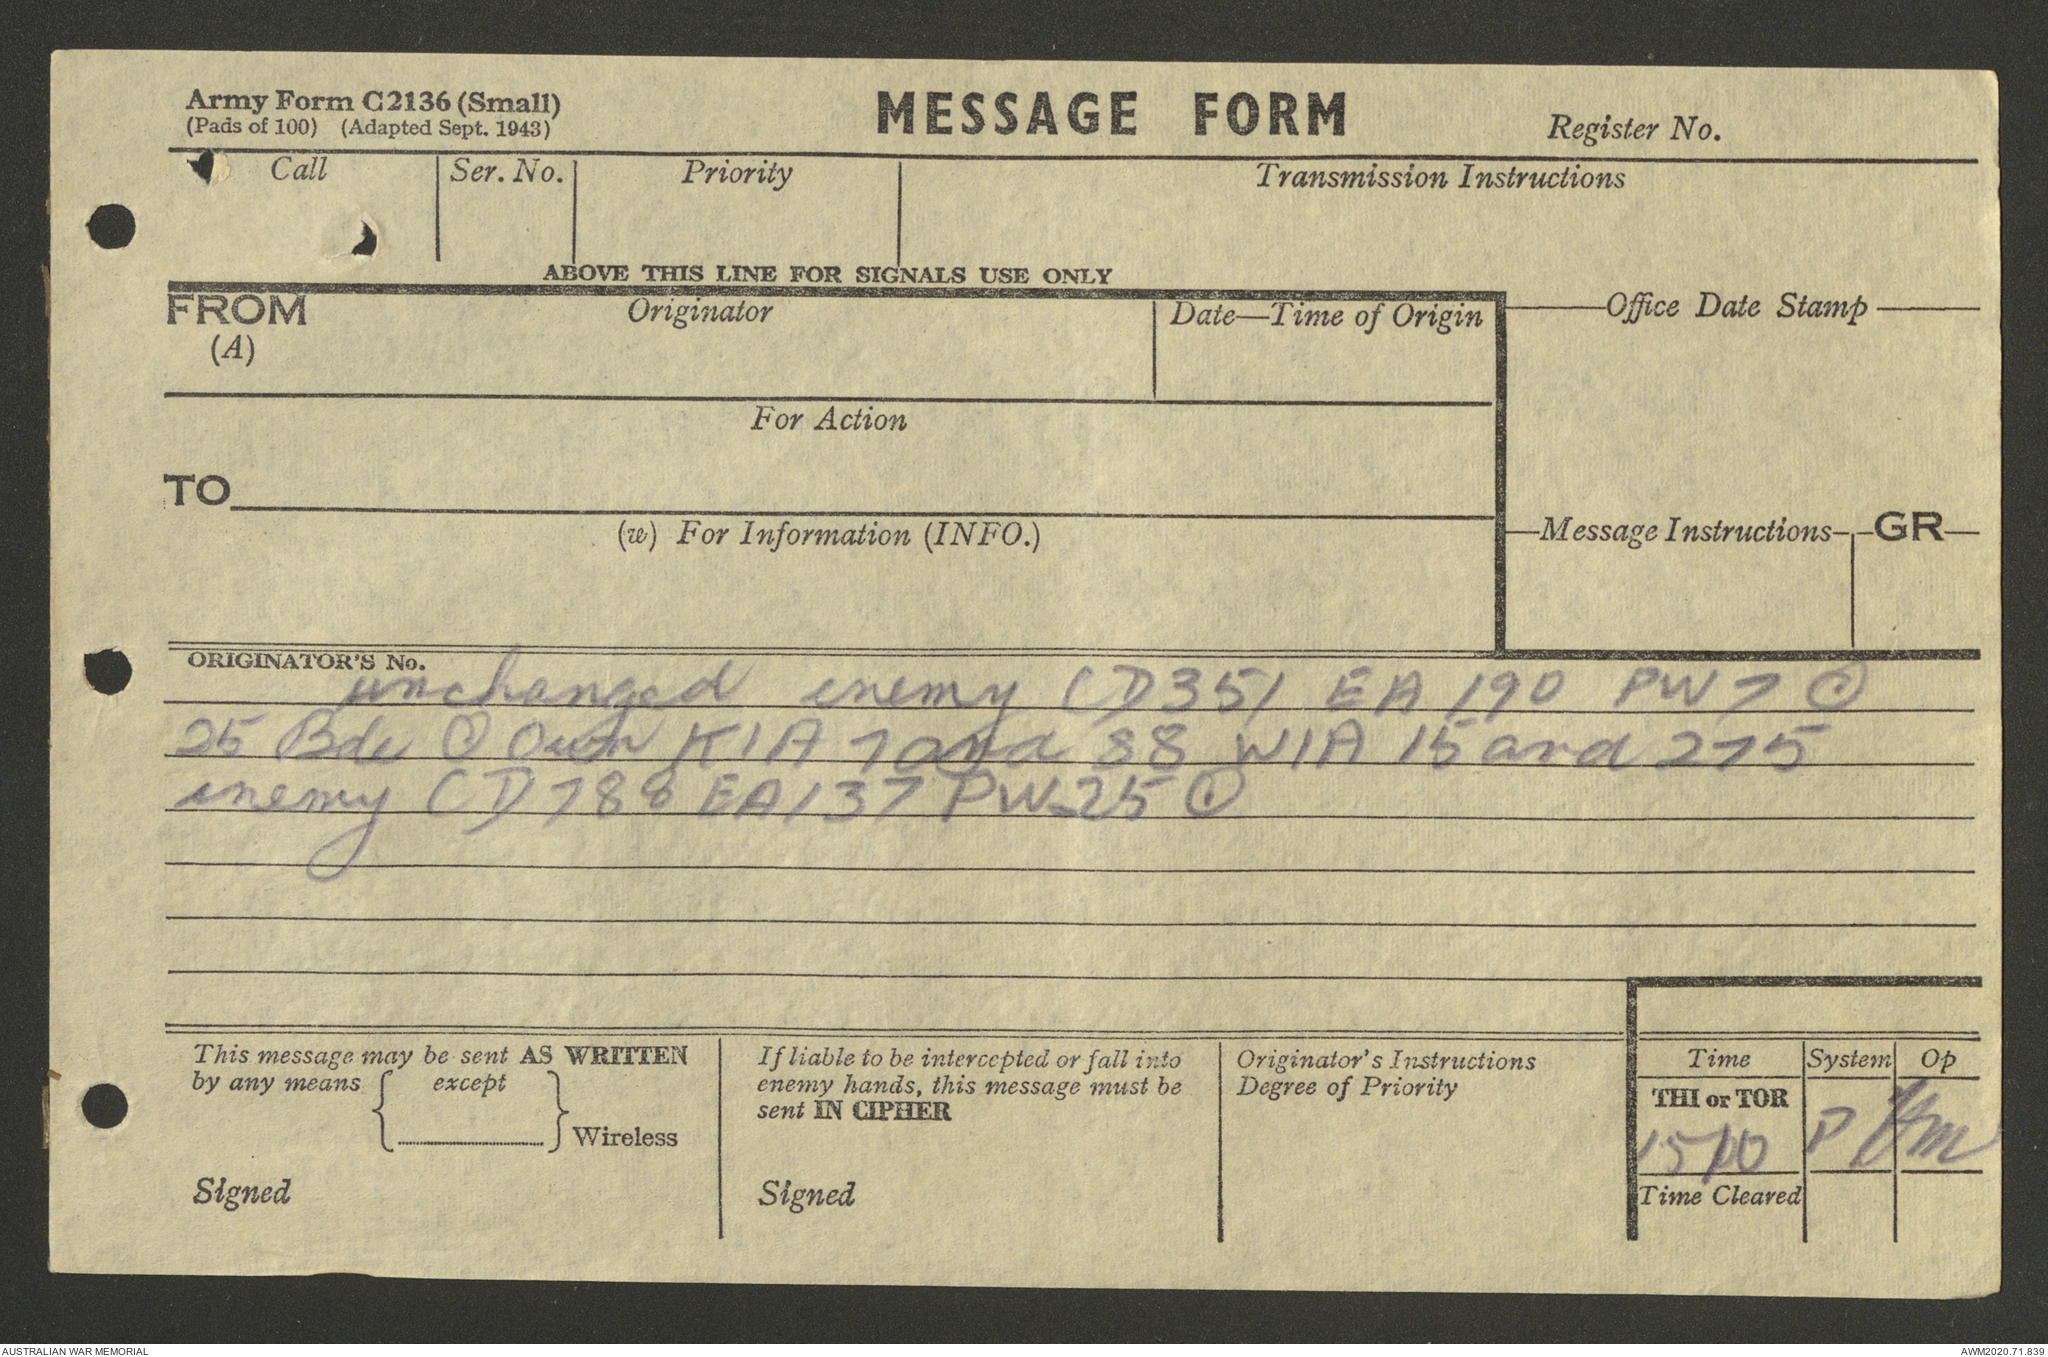 Army Form C2136 (Small)
(Pads of 100) (Adapted Sept. 1943)
MESSAGE FORM
Register No.
Call
Ser. No.
Priority
Transmission Instructions
ABOVE THIS LINE FOR SIGNALS USE ONLY
FROM
(A)
Originator
Date—Time of Origin
Office Date Stamp
For Action
TO
(w) For Information (INFO.)
Message Instructions
GR
ORIGINATOR'S No.
unchanged enemy CD 351 EA 190 PW 7 ⊙
25 Bde ⊙ Own KIA 7 and 88 WIA 15 and 275
enemy CD 788 EA 137 PW 25 ⊙
This message may be sent AS WRITTEN
by any means { except
} Wireless
Signed
If liable to be intercepted or fall into
enemy hands, this message must be
sent IN CIPHER
Signed
Originator's Instructions
Degree of Priority
Time
System
Op
THI or TOR
1510
P
Time Cleared
AUSTRALIAN WAR MEMORIAL
AWM2020.71.839